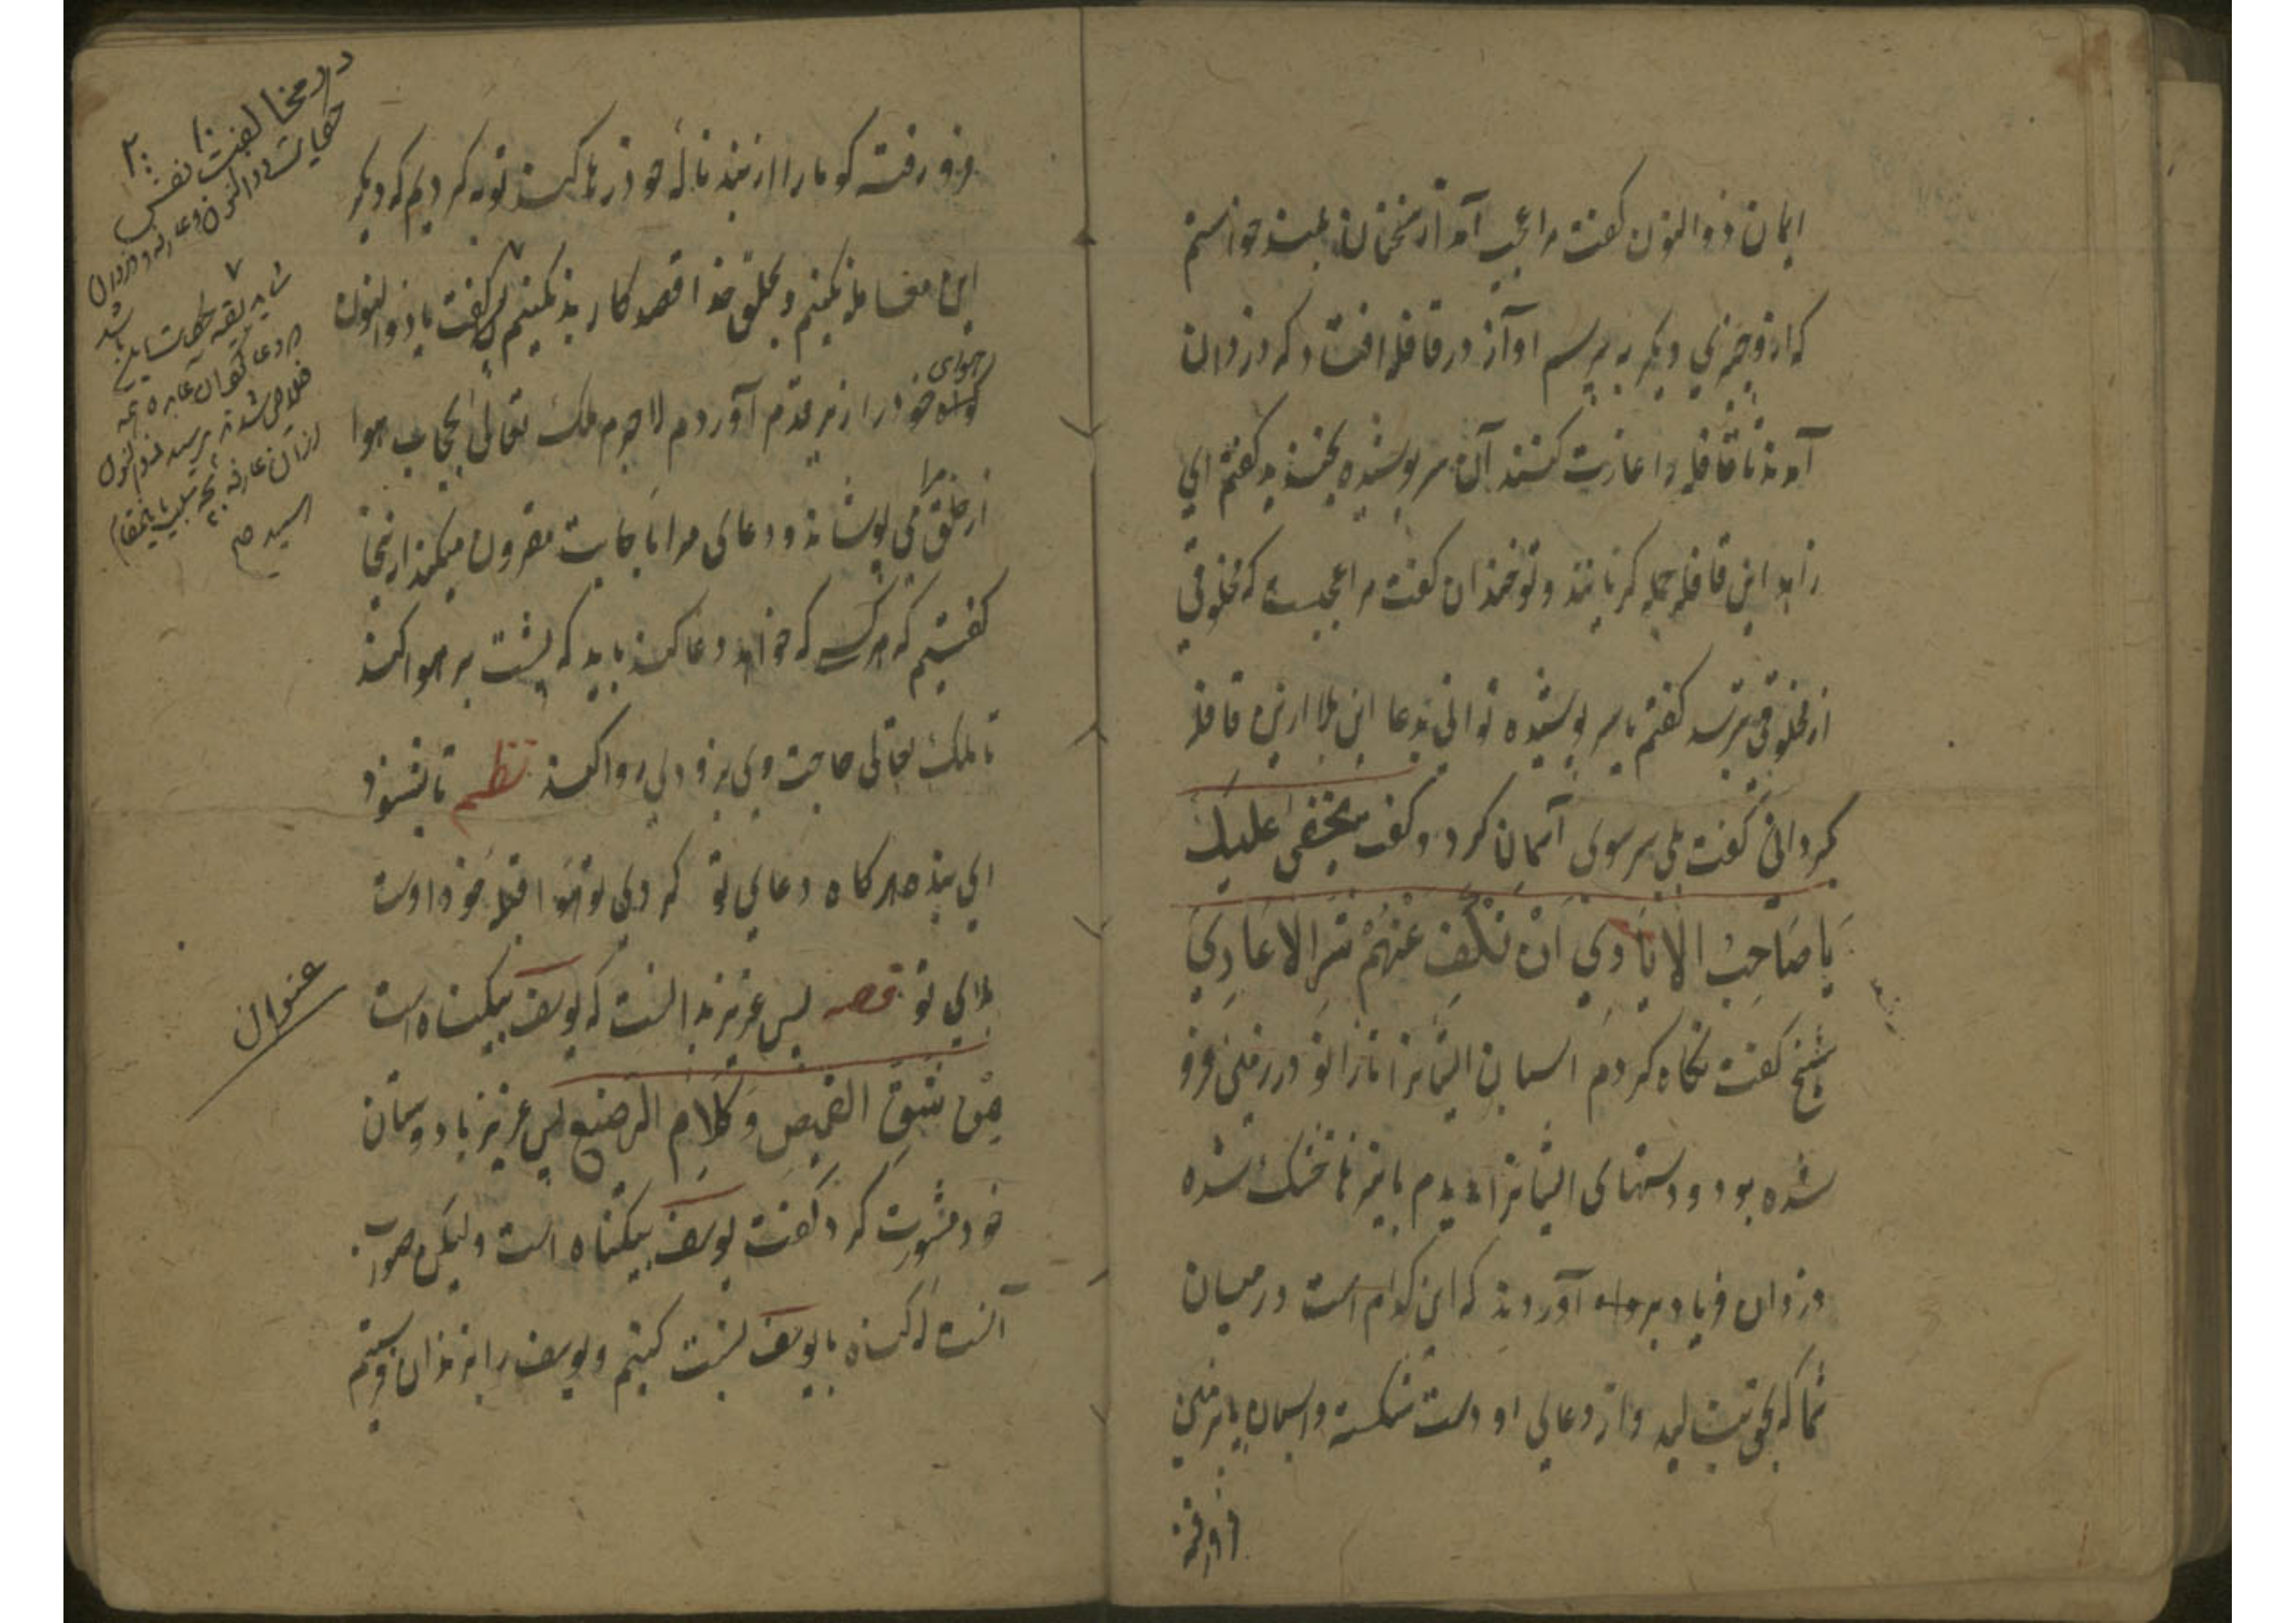 ایمان ذوالنون کفت مرا عجب آمد از سخنان بلیند خواستم
که از وی چیزی دیکر به پرسم آواز در قافله افتاد که دزدان
آمدند تا قافله را غارت کنند آن سر پوشیده بخندید کفتم ای
زاهد این قافله جمله کریانند و تو خندان کفت مرا عجبست که مخلوقی
از مخلوقی ترسد کفتم یا سر پوشیده توانی بدعا این بلا ازین قافله
کردانی کفت بلی سر سوی آسمان کرد و کفت بحقی علیک
یَا صَاحِبُ الاَیَادِی اَنْ تَکُفَ عَنْهُمْ شَرَ الاَعَادِیَ
شیخ کفت نکاه کردم اسبان ایشانرا تا زانو در زمین فرو
شده بود و دستهای ایشانرا دیدم با نیزها خشک شده
دزدان فریاد بر آوردند که این کدام است در میان
شما که بحق بنالید و از دعای او دست شکسته و اسبان بزمین
فرورفته
فرو رفته کو ما را از بند ناله خود رها کند توبه کردیم که دیکر
این معامله نکنیم و بخلق خدا قصد کار بد نکنیم پس کفت یا ذوالنون
هوای
خود را زیر قدم آوردم لاجرم ملک تعالی بحجاب هوا
مرا
از خلق می پوشاند و دعای مرا باجابت مقرون میکند ازینجا
کفتیم که هر کس که خواهد دعا کند باید که پشت بر هوا کند
تا ملک تعالی حاجت وی بزودی روا کند نظم تا نشنود
ای بنده هر کاه دعای تو که دل تو قبله خود اوست
برای تو قصه پس عزیز بدانست که یوسف بیکناه است
مِن شَقِ القمیصِ وَ کَلاَمِ الرضیع پس عزیز با دوستان
خود مشورت کرد کفت یوسف بیکناه است ولیکن صواب
آنست که کناه با یوسف نسبت کنیم و یوسف را بزندان فرستیم
در مخالفت نفس
حکایت ذوالنون و عارفه و دزدان
شاید بقیه حکایت این باشد
خلاص شدند پرسید ذوالنون
از آن عارفه بچه باین مقام
رسیدی
عنوان